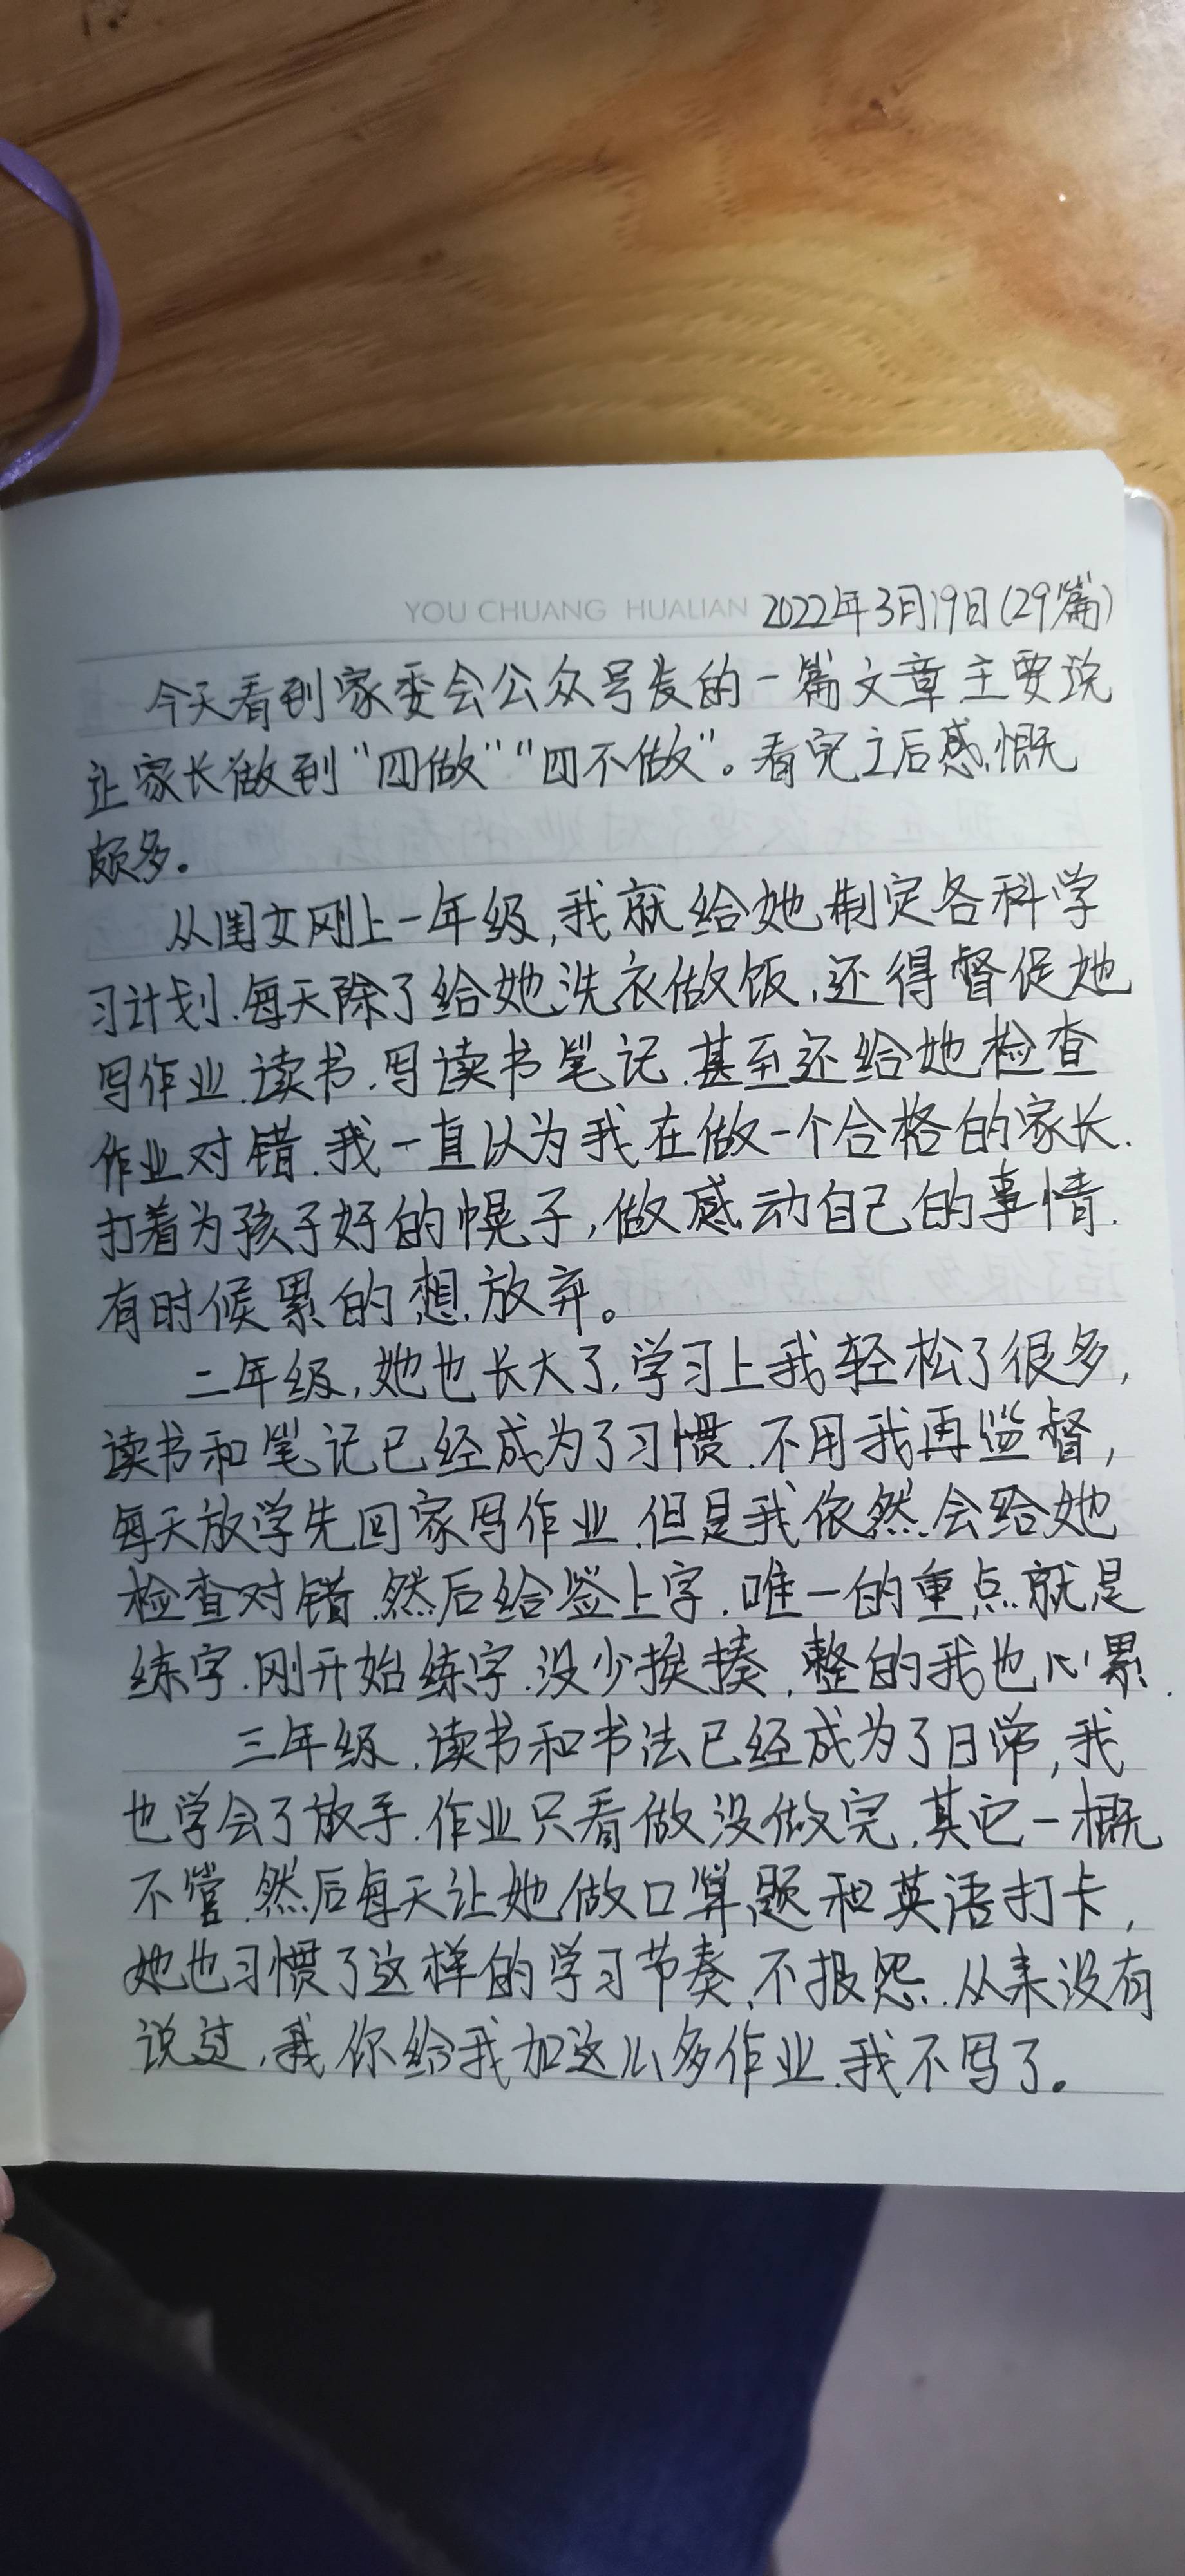 YOU CHUANG HUALIAN 2022年3月19日(29篇)
今天看到家委会公众号发的一篇文章.主要说
让家长做到“四做”“四不做”。看完之后感慨
颇多。
从闺女刚上一年级,我就给她制定各科学
习计划.每天除了给她洗衣做饭,还得督促她
写作业.读书.写读书笔记.甚至还给她检查
作业对错.我一直以为我在做一个合格的家长.
打着为孩子好的幌子,做感动自己的事情.
有时候累的想放弃。
二年级,她也长大了.学习上我轻松了很多,
读书和笔记已经成为了习惯.不用我再监督,
每天放学先回家写作业.但是我依然会给她
检查对错.然后给签上字.唯一的重点就是
练字.刚开始练字.没少挨揍,整的我也心累.
三年级,读书和书法已经成为了日常,我
也学会了放手.作业只看做没做完,其它一概
不管.然后每天让她做口算题和英语打卡,
她也习惯了这样的学习节奏,不报怨.从来没有
说过,我你给我加这么多作业.我不写了。